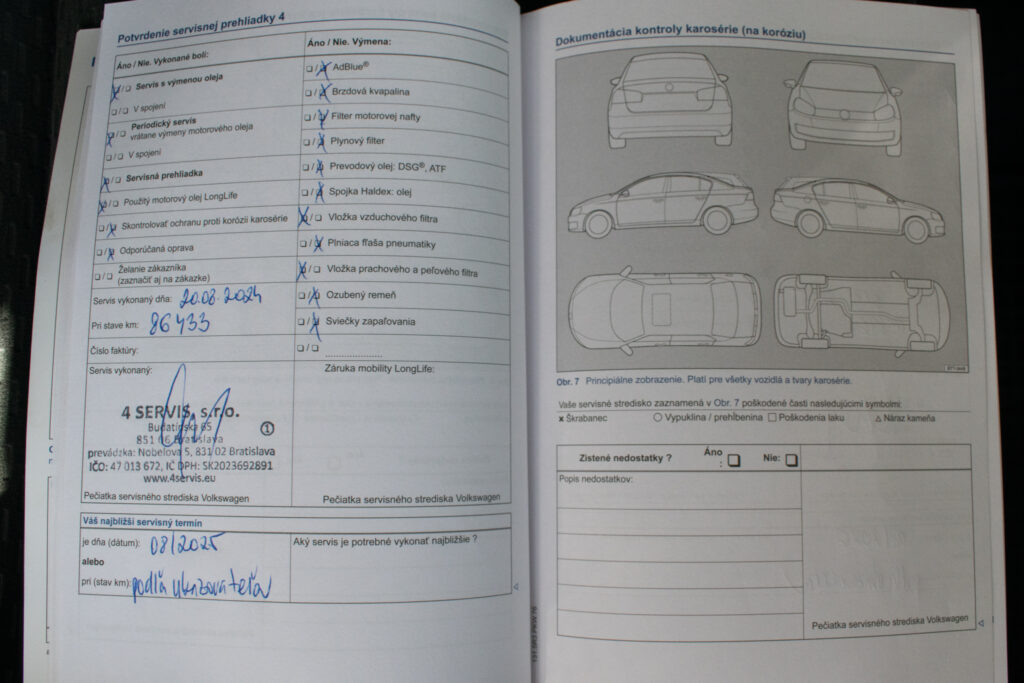 Potvrdenie servisnej prehliadky 4
Áno / Nie. Vykonané boli:
☒/☐ Servis s výmenou oleja
☐/☐ V spojení
☒/☐ Periodický servis
vrátane výmeny motorového oleja
☐/☐ V spojení
☒/☐ Servisná prehliadka
☒/☐ Použitý motorový olej LongLife
☐/☒ Skontrolovať ochranu proti korózii karosérie
☐/☒ Odporúčaná oprava
☐/☐ Želanie zákazníka
(zaznačiť aj na zákazke)
Servis vykonaný dňa: 20.08.2024
Pri stave km: 86433
Číslo faktúry:
Servis vykonaný:
4 SERVIS, s.r.o.
Budatínska 65
851 06 Bratislava
1
prevádzka: Nobelova 5, 831 02 Bratislava
IČO: 47 013 672, IČ DPH: SK2023692891
www.4servis.eu
Pečiatka servisného strediska Volkswagen
Áno / Nie. Výmena:
☐/☒ AdBlue®
☐/☒ Brzdová kvapalina
☐/☒ Filter motorovej nafty
☐/☒ Plynový filter
☐/☒ Prevodový olej: DSG®, ATF
☐/☒ Spojka Haldex: olej
☒/☐ Vložka vzduchového filtra
☐/☒ Plniaca fľaša pneumatiky
☒/☐ Vložka prachového a peľového filtra
☐/☒ Ozubený remeň
☐/☒ Sviečky zapaľovania
☐/☐ ....................
Záruka mobility LongLife:
Pečiatka servisného strediska Volkswagen
Váš najbližší servisný termín
je dňa (dátum): 08/2025
alebo
pri (stav km): podľa ukazovateľov
Aký servis je potrebné vykonať najbližšie ?
Dokumentácia kontroly karosérie (na koróziu)
Obr. 7 Principiálne zobrazenie. Platí pre všetky vozidlá a tvary karosérie.
Vaše servisné stredisko zaznamená v Obr. 7 poškodené časti nasledujúcimi symbolmi:
x Škrabanec ○ Vypuklina / prehĺbenina ☐ Poškodenia laku △ Náraz kameňa
Zistené nedostatky ? Áno : ☐ Nie: ☐
Popis nedostatkov:
Pečiatka servisného strediska Volkswagen